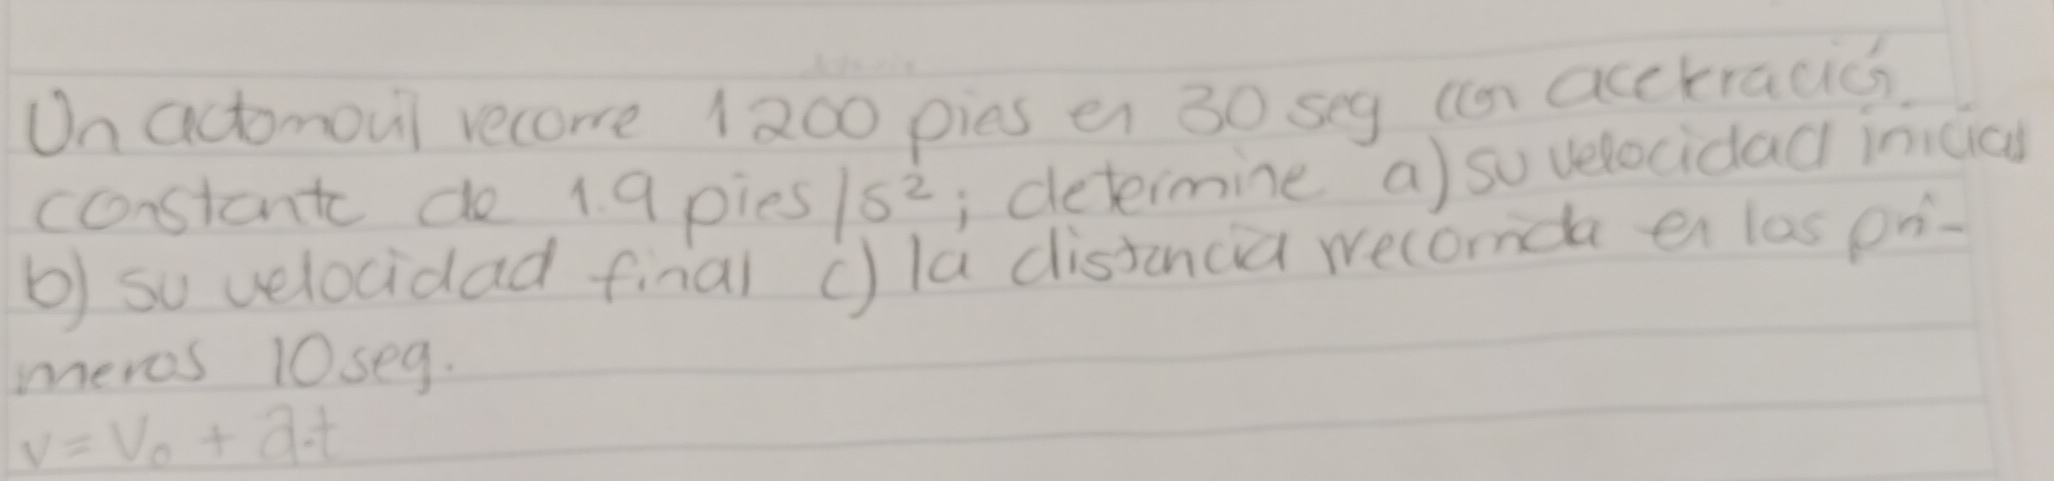 Un actomovil recorre 1200 pies en 30 seg con aceleració
constante de 1.9 pies/s²; determine a) su velocidad inicial
b) su velocidad final c) la distancia rrecorrida en los pri-
meros 10 seg.
v = v₀ + a·t